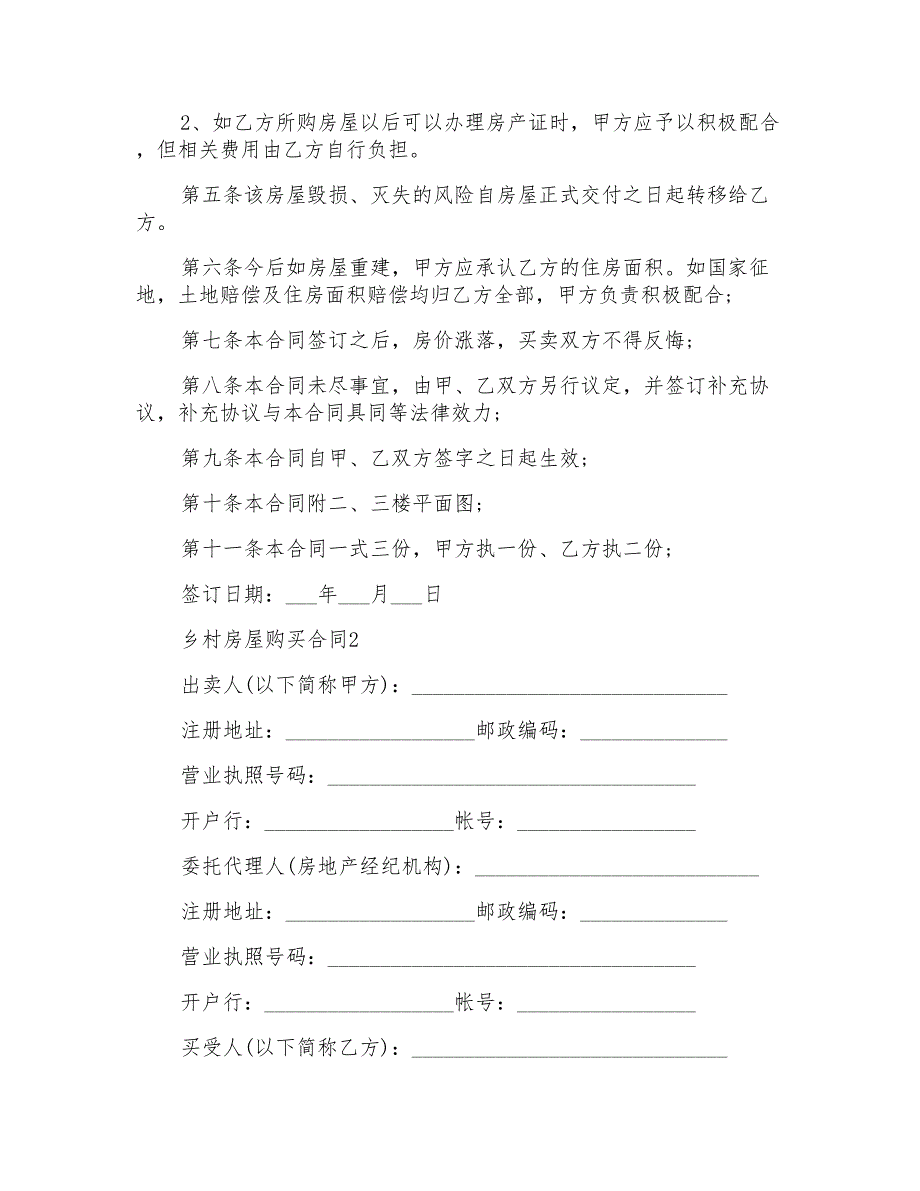 2、如乙方所购房屋以后可以办理房产证时，甲方应予以积极配合
，但相关费用由乙方自行负担。
第五条该房屋毁损、灭失的风险自房屋正式交付之日起转移给乙
方。
第六条今后如房屋重建，甲方应承认乙方的住房面积。如国家征
地，土地赔偿及住房面积赔偿均归乙方全部，甲方负责积极配合;
第七条本合同签订之后，房价涨落，买卖双方不得反悔;
第八条本合同未尽事宜，由甲、乙双方另行议定，并签订补充协
议，补充协议与本合同具同等法律效力;
第九条本合同自甲、乙双方签字之日起生效;
第十条本合同附二、三楼平面图;
第十一条本合同一式三份，甲方执一份、乙方执二份;
签订日期：___年___月___日
乡村房屋购买合同2
出卖人(以下简称甲方)：______________________________
注册地址：__________________邮政编码：______________
营业执照号码：___________________________________
开户行：__________________帐号：_________________
委托代理人(房地产经纪机构)：___________________________
注册地址：__________________邮政编码：______________
营业执照号码：___________________________________
开户行：__________________帐号：_________________
买受人(以下简称乙方)：______________________________